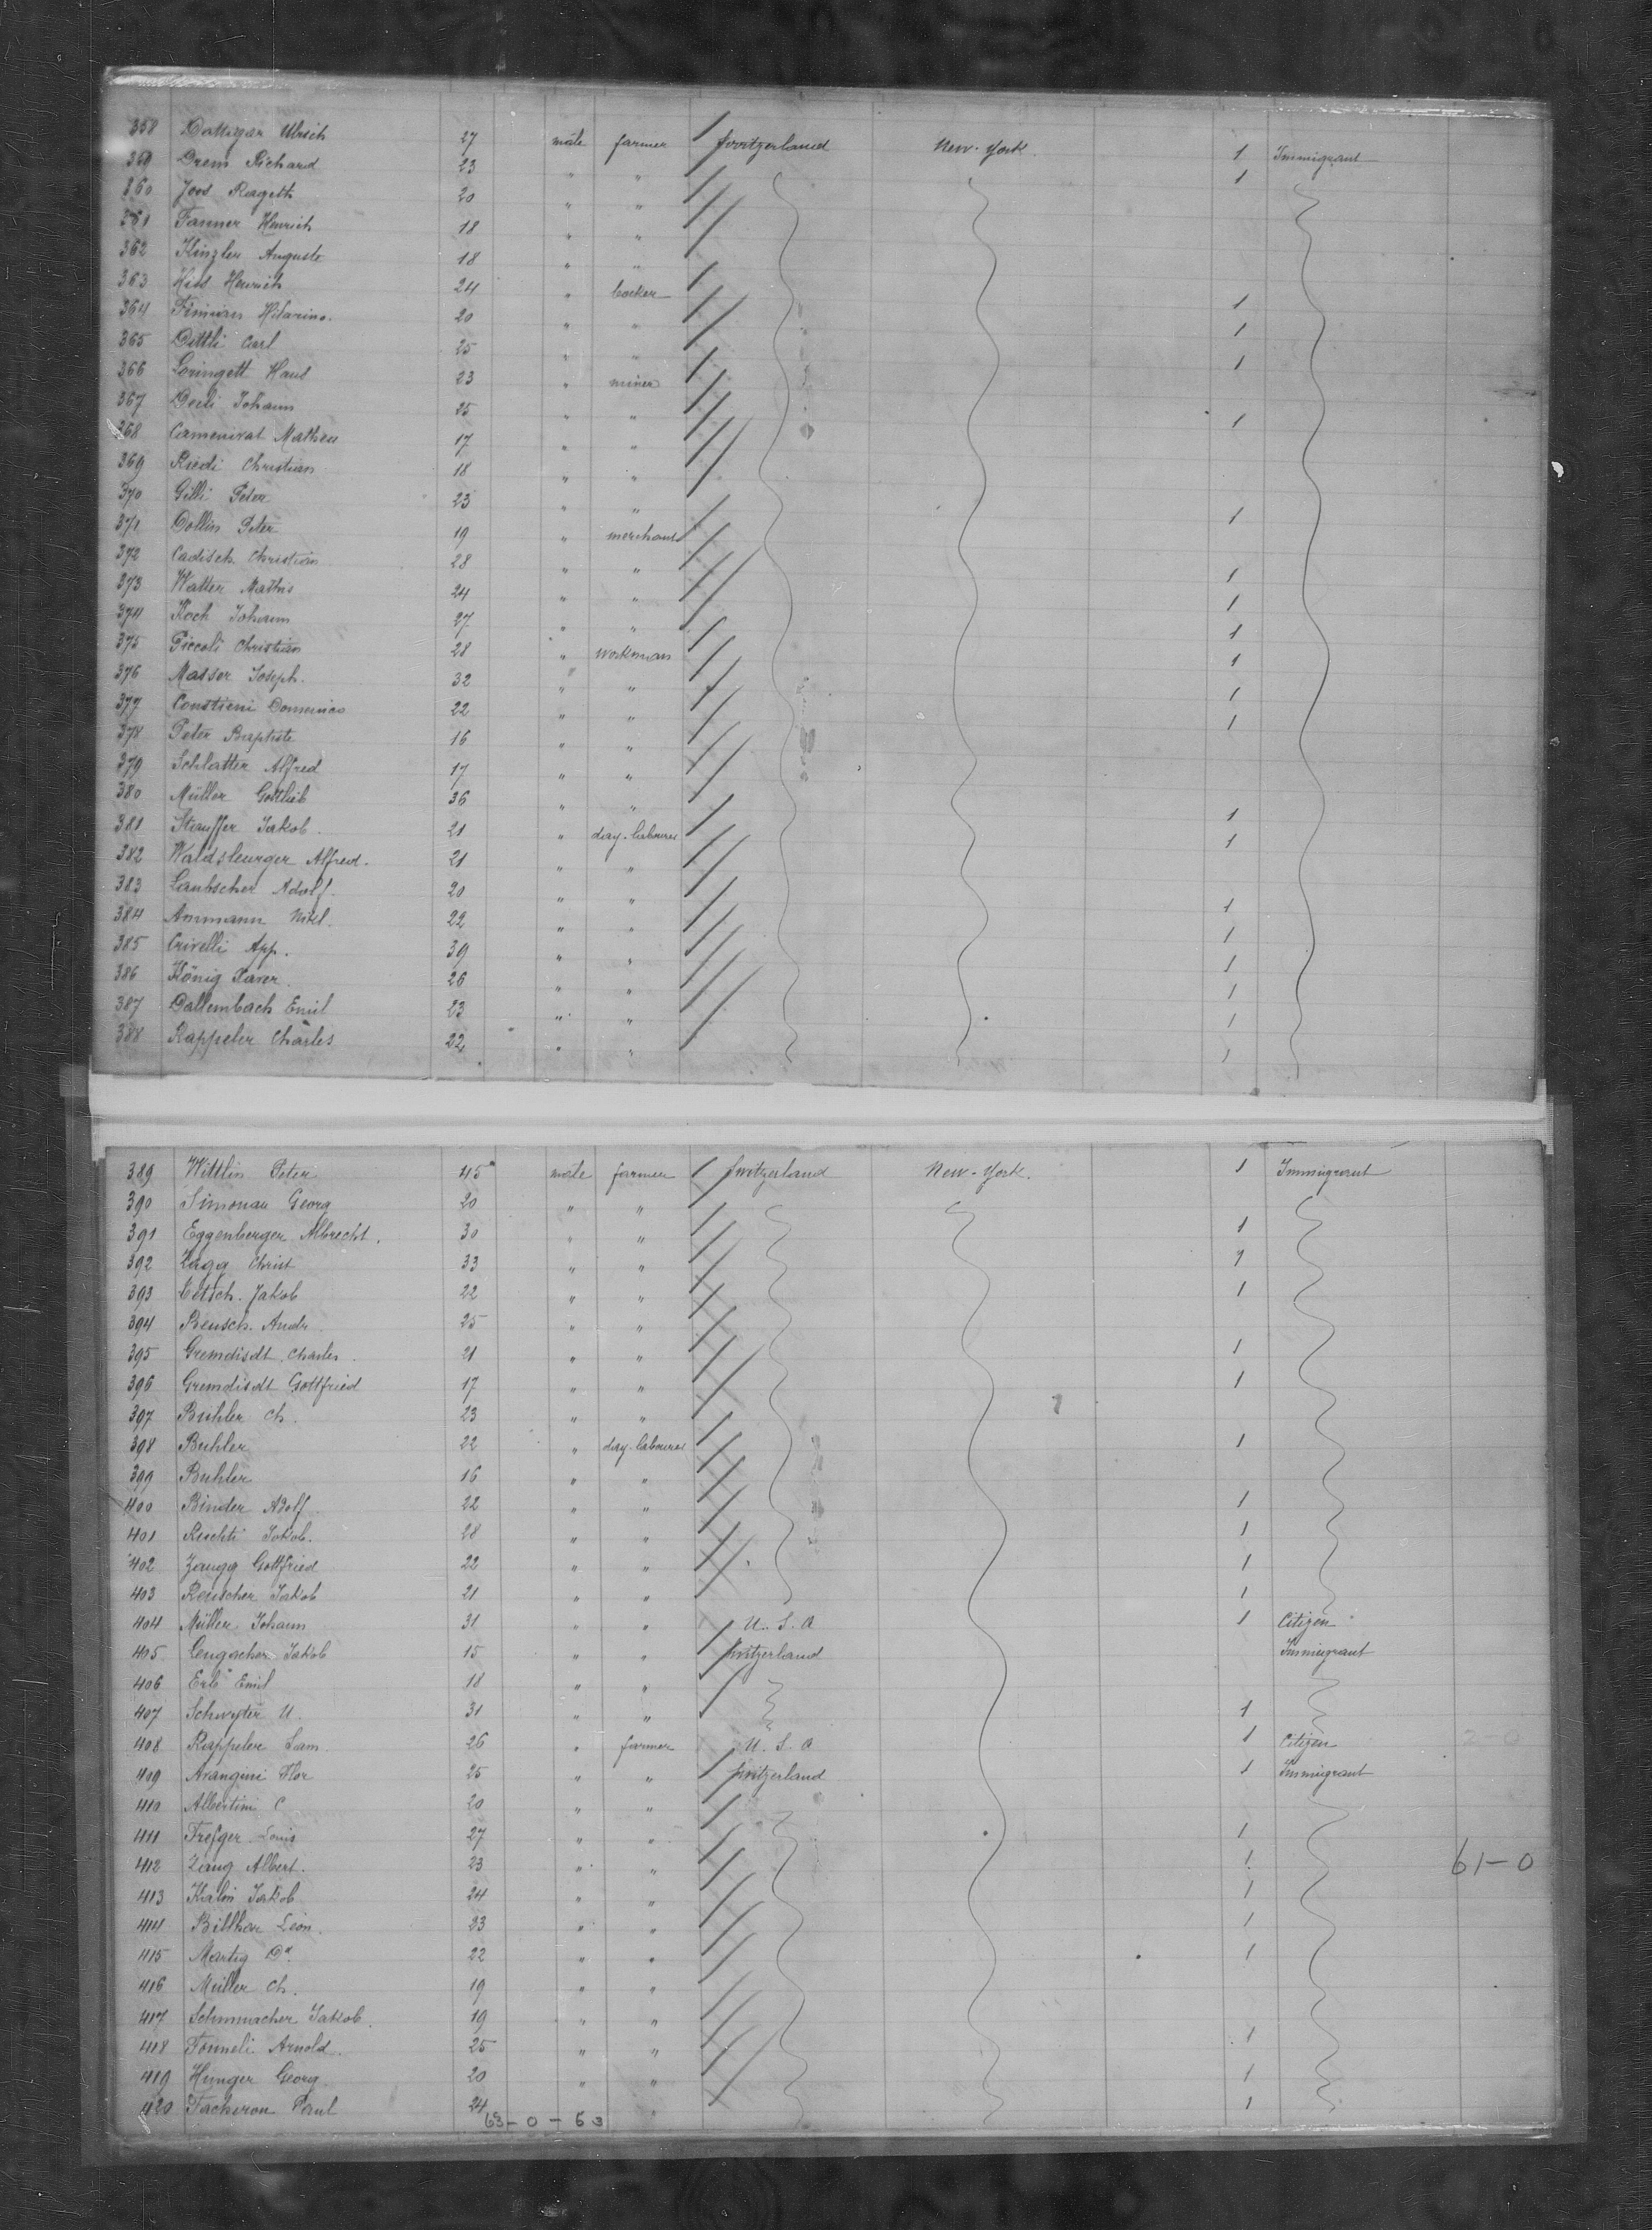 358 Dattigar Ulrich 27 male farmer Switzerland New-York 1 Immigrant
359 Drem Richard 23 " " 1
360 Joos Rageth 20 " "
361 Tanner Henrich 18 " "
362 Kinzler Auguste 18 " "
363 Hiss Henrich 24 " backer 1
364 Hilarino. 20 " " 1
365 Dittli Carl 25 " " 1
366 Loringett Hans 23 " miner
367 Johann 25 " " 1
368 Camenivat Matheu 17 " "
369 Riedi Christian 18 " "
370 Gilli Peter 23 " " 1
371 Collin Peter 19 " merchant
372 Cadisch Christian 28 " " 1
373 Walter Mathis 24 " " 1
374 Koch Johann 27 " " 1
375 Piccoli Christian 28 " workman 1
376 Masser Joseph. 32 " " 1
377 Constieni Domenico 22 " " 1
378 Peter Baptiste 16 " "
379 Schlatter Alfred 17 " "
380 Müller Gottlieb 36 " " 1
381 Stauffer Jakob. 21 " day-labourer 1
382 Waldsburger Alfred. 21 " "
383 Laubscher Adolf. 20 " " 1
384 Ammann Nikl. 22 " " 1
385 Crivelli App. 39 " " 1
386 König Xaver. 26 " " 1
387 Dallembach Emil 23 " " 1
388 Kappeler Charles 22 " " 1
389 Wittlin Peter 45 male farmer Switzerland New-York. 1 Immigrant
390 Simonau Georg 20 " "
391 Eggenberger Albrecht. 30 " " 1
392 Zagg Christ 33 " " 1
393 Jakob 22 " " 1
394 Reusch. Andr. 25 " "
395 Gremdisdt, Charles. 21 " " 1
396 Gremdisdt Gottfried 17 " " 1
397 Buhler Ch. 23 " "
398 Buhler 22 " day-labourer 1
399 Buhler 16 " "
400 Binder Adolf. 22 " " 1
401 Ruchti Jakob. 28 " " 1
402 Zaugg Gottfried 22 " " 1
403 Reuscher Jakob 21 " " 1
404 Müller Johann 31 " " U. S. A 1 Citizen
405 Lengacher Jakob 15 " " Switzerland Immigrant
406 Erb Emil 18 " "
407 Schwyter U. 31 " " 1
408 Kappeler Sam. 26 " farmer U. S. A 1 Citizen 2-0
409 Arangini Flor 25 " " Switzerland 1 Immigrant
410 Albertini C 20 " "
411 Trefger Louis 27 " " 1
412 Zaug Albert. 23 " " 1 61-0
413 Kalin Jakob 24 " " 1
414 Billhar Léon. 23 " " 1
415 Martig 22 " " 1
416 Müller Ch. 19 " "
417 Schumacher Jakob. 19 " "
418 Tonneli Arnold. 25 " " 1
419 Hunger Georg 20 " " 1
420 Tacheron Paul 24 " 1
63-0-63